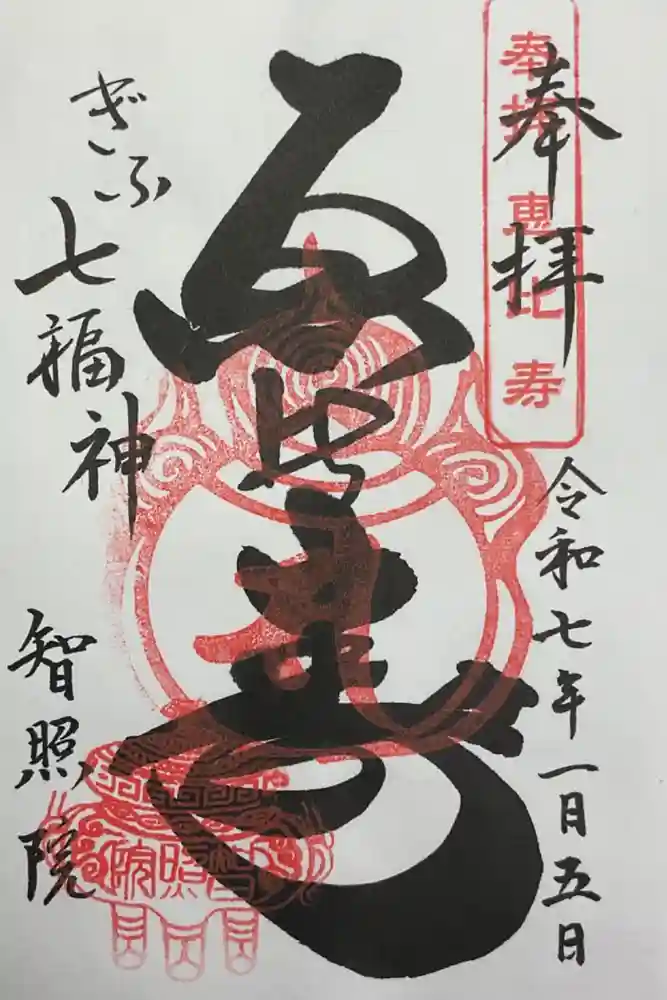 奉拝
奉拝 恵比寿
令和七年一月五日
恵比寿
ぎふ
七福神
智照院
智照院